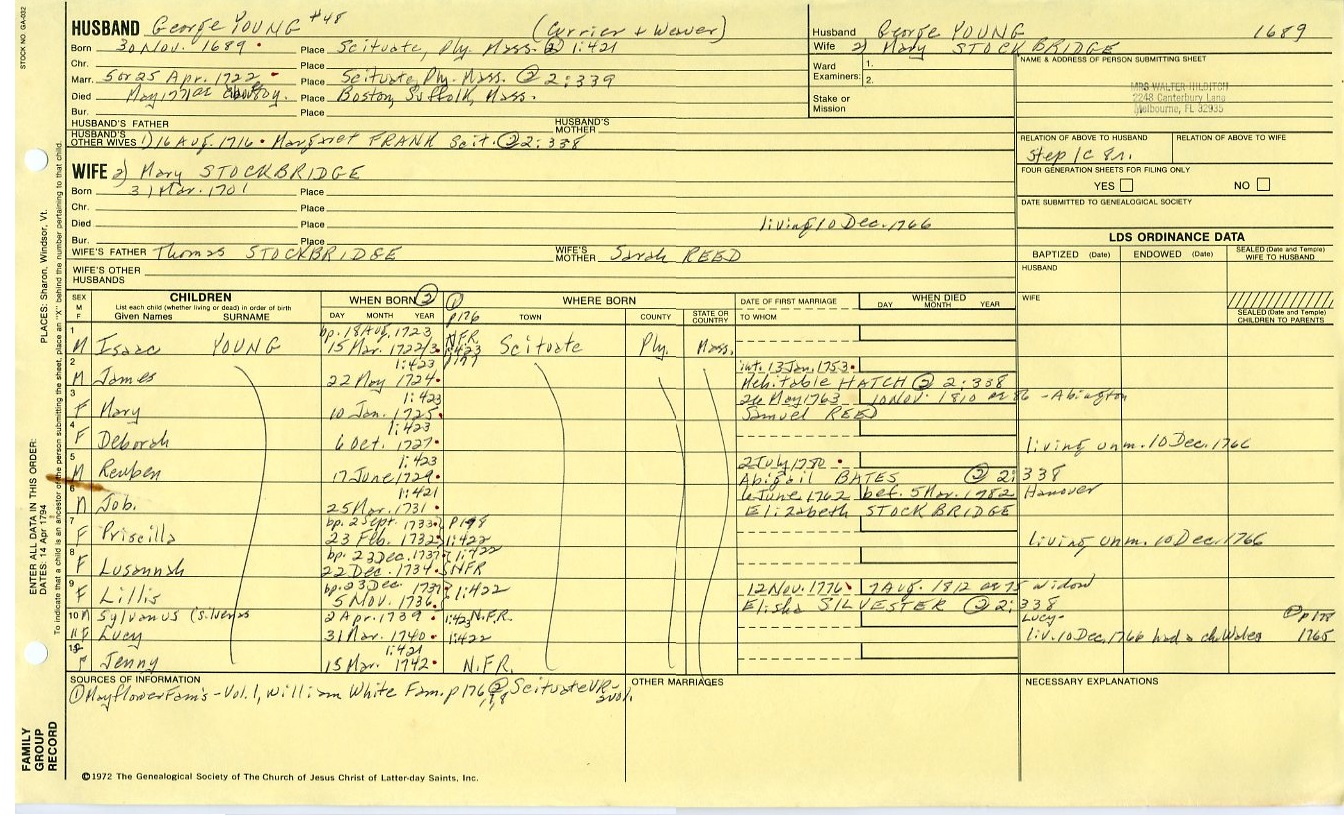 STOCK NO. GA-032
HUSBAND George YOUNG #48 (Currier + Weaver)
Born 30 Nov. 1689 Place Scituate, Ply. Mass. ② 1:421
Chr. Place
Marr. 5 or 25 Apr. 1722 Place Scituate, Ply. Mass. ② 2:339
Died May 1771 Place Boston, Suffolk, Mass.
Bur. Place
HUSBAND'S FATHER HUSBAND'S MOTHER
HUSBAND'S OTHER WIVES 1) 16 Aug. 1716 Margaret FRANK Scit. ② 2:338
WIFE 2) Mary STOCKBRIDGE
Born 31 Mar. 1701 Place
Chr. Place
Died Place living 10 Dec. 1766
Bur. Place
WIFE'S FATHER Thomas STOCKBRIDGE WIFE'S MOTHER Sarah REED
WIFE'S OTHER HUSBANDS
Husband George YOUNG 1689
Wife 2) Mary STOCKBRIDGE
Ward Examiners: 1. 2.
Stake or Mission
NAME & ADDRESS OF PERSON SUBMITTING SHEET
MRS WALTER HILDITCH
2248 Canterbury Lane
Melbourne, FL 32935
RELATION OF ABOVE TO HUSBAND RELATION OF ABOVE TO WIFE
Step 1c 8r.
FOUR GENERATION SHEETS FOR FILING ONLY
YES NO
DATE SUBMITTED TO GENEALOGICAL SOCIETY
LDS ORDINANCE DATA
BAPTIZED (Date) ENDOWED (Date) SEALED (Date and Temple) WIFE TO HUSBAND
HUSBAND
WIFE
SEALED (Date and Temple) CHILDREN TO PARENTS
SEX M F CHILDREN List each child (whether living or dead) in order of birth Given Names SURNAME
WHEN BORN ② DAY MONTH YEAR ① p176
WHERE BORN TOWN COUNTY STATE OR COUNTRY
DATE OF FIRST MARRIAGE TO WHOM
WHEN DIED DAY MONTH YEAR
1 M Isaac YOUNG bp. 18 Aug. 1723 15 Mar. 1722/3 N.F.R. 1:423 Scituate Ply. Mass.
2 M James 1:423 22 May 1724 p177 int. 13 Jan. 1753 Mehitable HATCH ② 2:338
3 F Mary 1:423 10 Jan. 1725 26 May 1763 Samuel REED 10 Nov. 1810 ae 86 - Abington
4 F Deborah 1:423 6 Oct. 1727 living unm. 10 Dec. 1766
5 M Reuben 1:423 17 June 1729 2 July 1750 Abigail BATES ② 2:338
6 M Job 1:421 25 Mar. 1731 6 June 1762 Elizabeth STOCKBRIDGE bef. 5 Mar. 1782 Hanover
7 F Priscilla bp. 2 Sept. 1733 23 Feb. 1732 p178 1:422 living unm. 10 Dec. 1766
8 F Lusannah bp. 23 Dec. 1737 22 Dec. 1734 1:422 NFR
9 F Lillis bp. 23 Dec. 1737 5 Nov. 1736 1:422 12 Nov. 1776 Elisha SILVESTER ② 2:338 7 Aug. 1812 ae 75 widow
10 M Sylvanus (Silvenas 2 Apr. 1739 1:423 N.F.R.
11 F Lucy 31 Mar. 1740 1:422 Lucy - liv. 10 Dec. 1766 had a ch. Wales 1765 ① p178
12 F Jenny 1:421 15 Mar. 1742 N.F.R.
SOURCES OF INFORMATION
① Mayflower Fam's - Vol. 1, William White Fam. p176, 7, 8 ② Scituate VR - 2 vol.
OTHER MARRIAGES
NECESSARY EXPLANATIONS
©1972 The Genealogical Society of The Church of Jesus Christ of Latter-day Saints, Inc.
PLACES: Sharon, Windsor, Vt.
ENTER ALL DATA IN THIS ORDER:
DATES: 14 Apr 1794
To indicate that a child is an ancestor of the person submitting the sheet, place an "X" behind the number pertaining to that child.
FAMILY GROUP RECORD